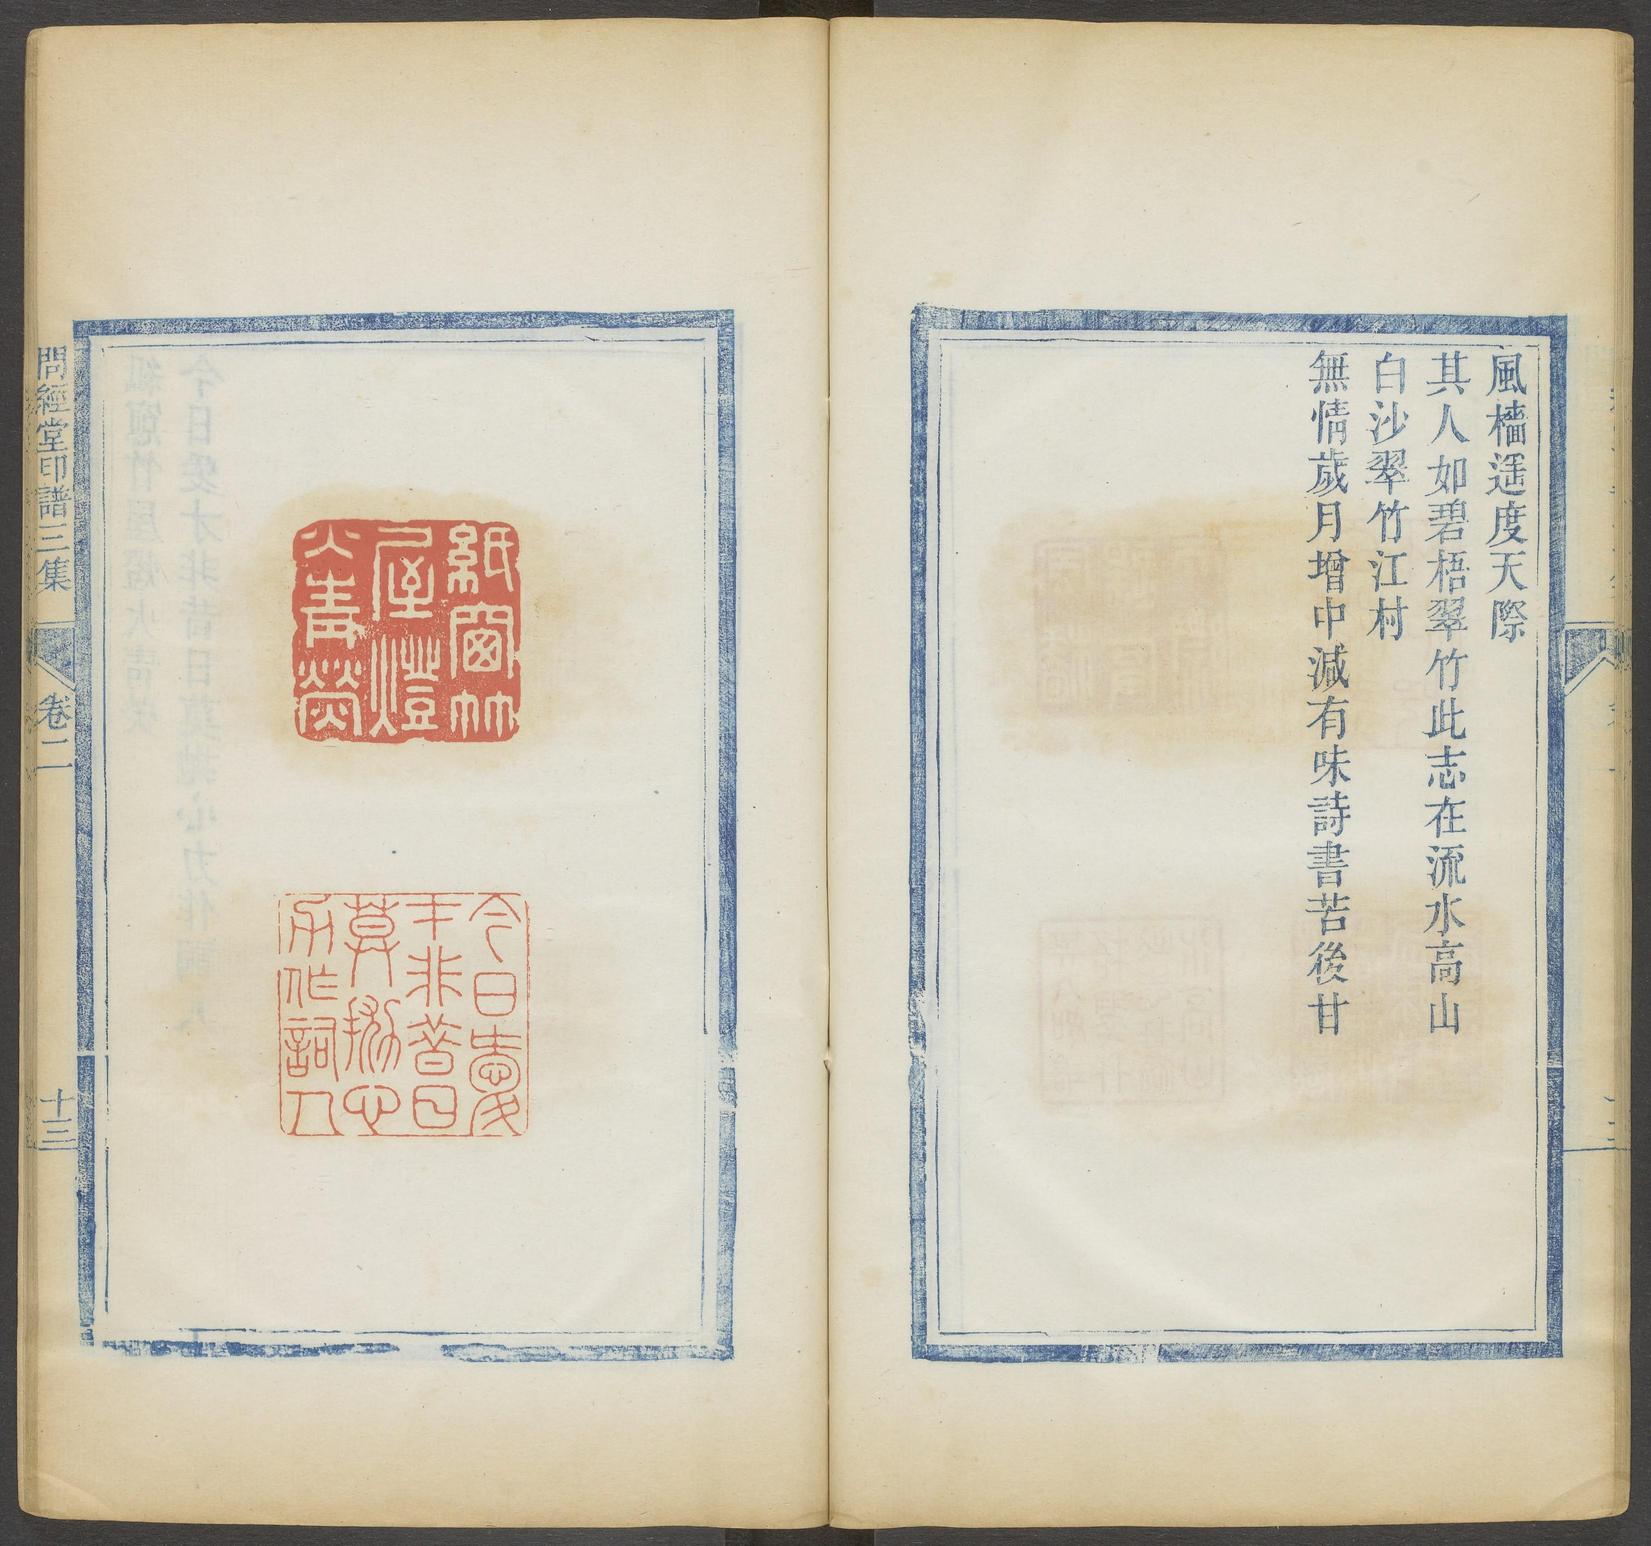 風檣遥度天際
其人如碧梧翠竹此志在流水高山
白沙翠竹江村
無情歲月增中減有味詩書苦後甘
紙窗竹
屋燈
火青熒
今日愛
才非昔日
莫抛心
力作詞人
問經堂印譜三集
卷二
十三